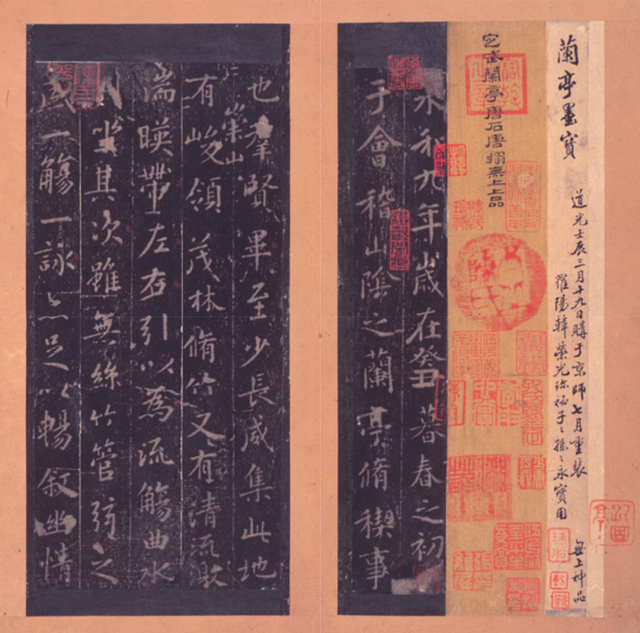 蘭亭墨寶
道光壬辰三月十九日購于京師七月重裝
羅陽韓榮光珎祕子〻孫〻永寶用
無上神品
定武蘭亭唐石唐搨無上上品
永和九年歲在癸丑暮春之初
于會稽山陰之蘭亭脩稧事
也羣賢畢至少長咸集此地
有崇山峻領茂林脩竹又有清流激
湍暎帶左右引以為流觴曲水
列坐其次雖無絲竹管弦之
盛一觴一詠亦足以暢敘幽情